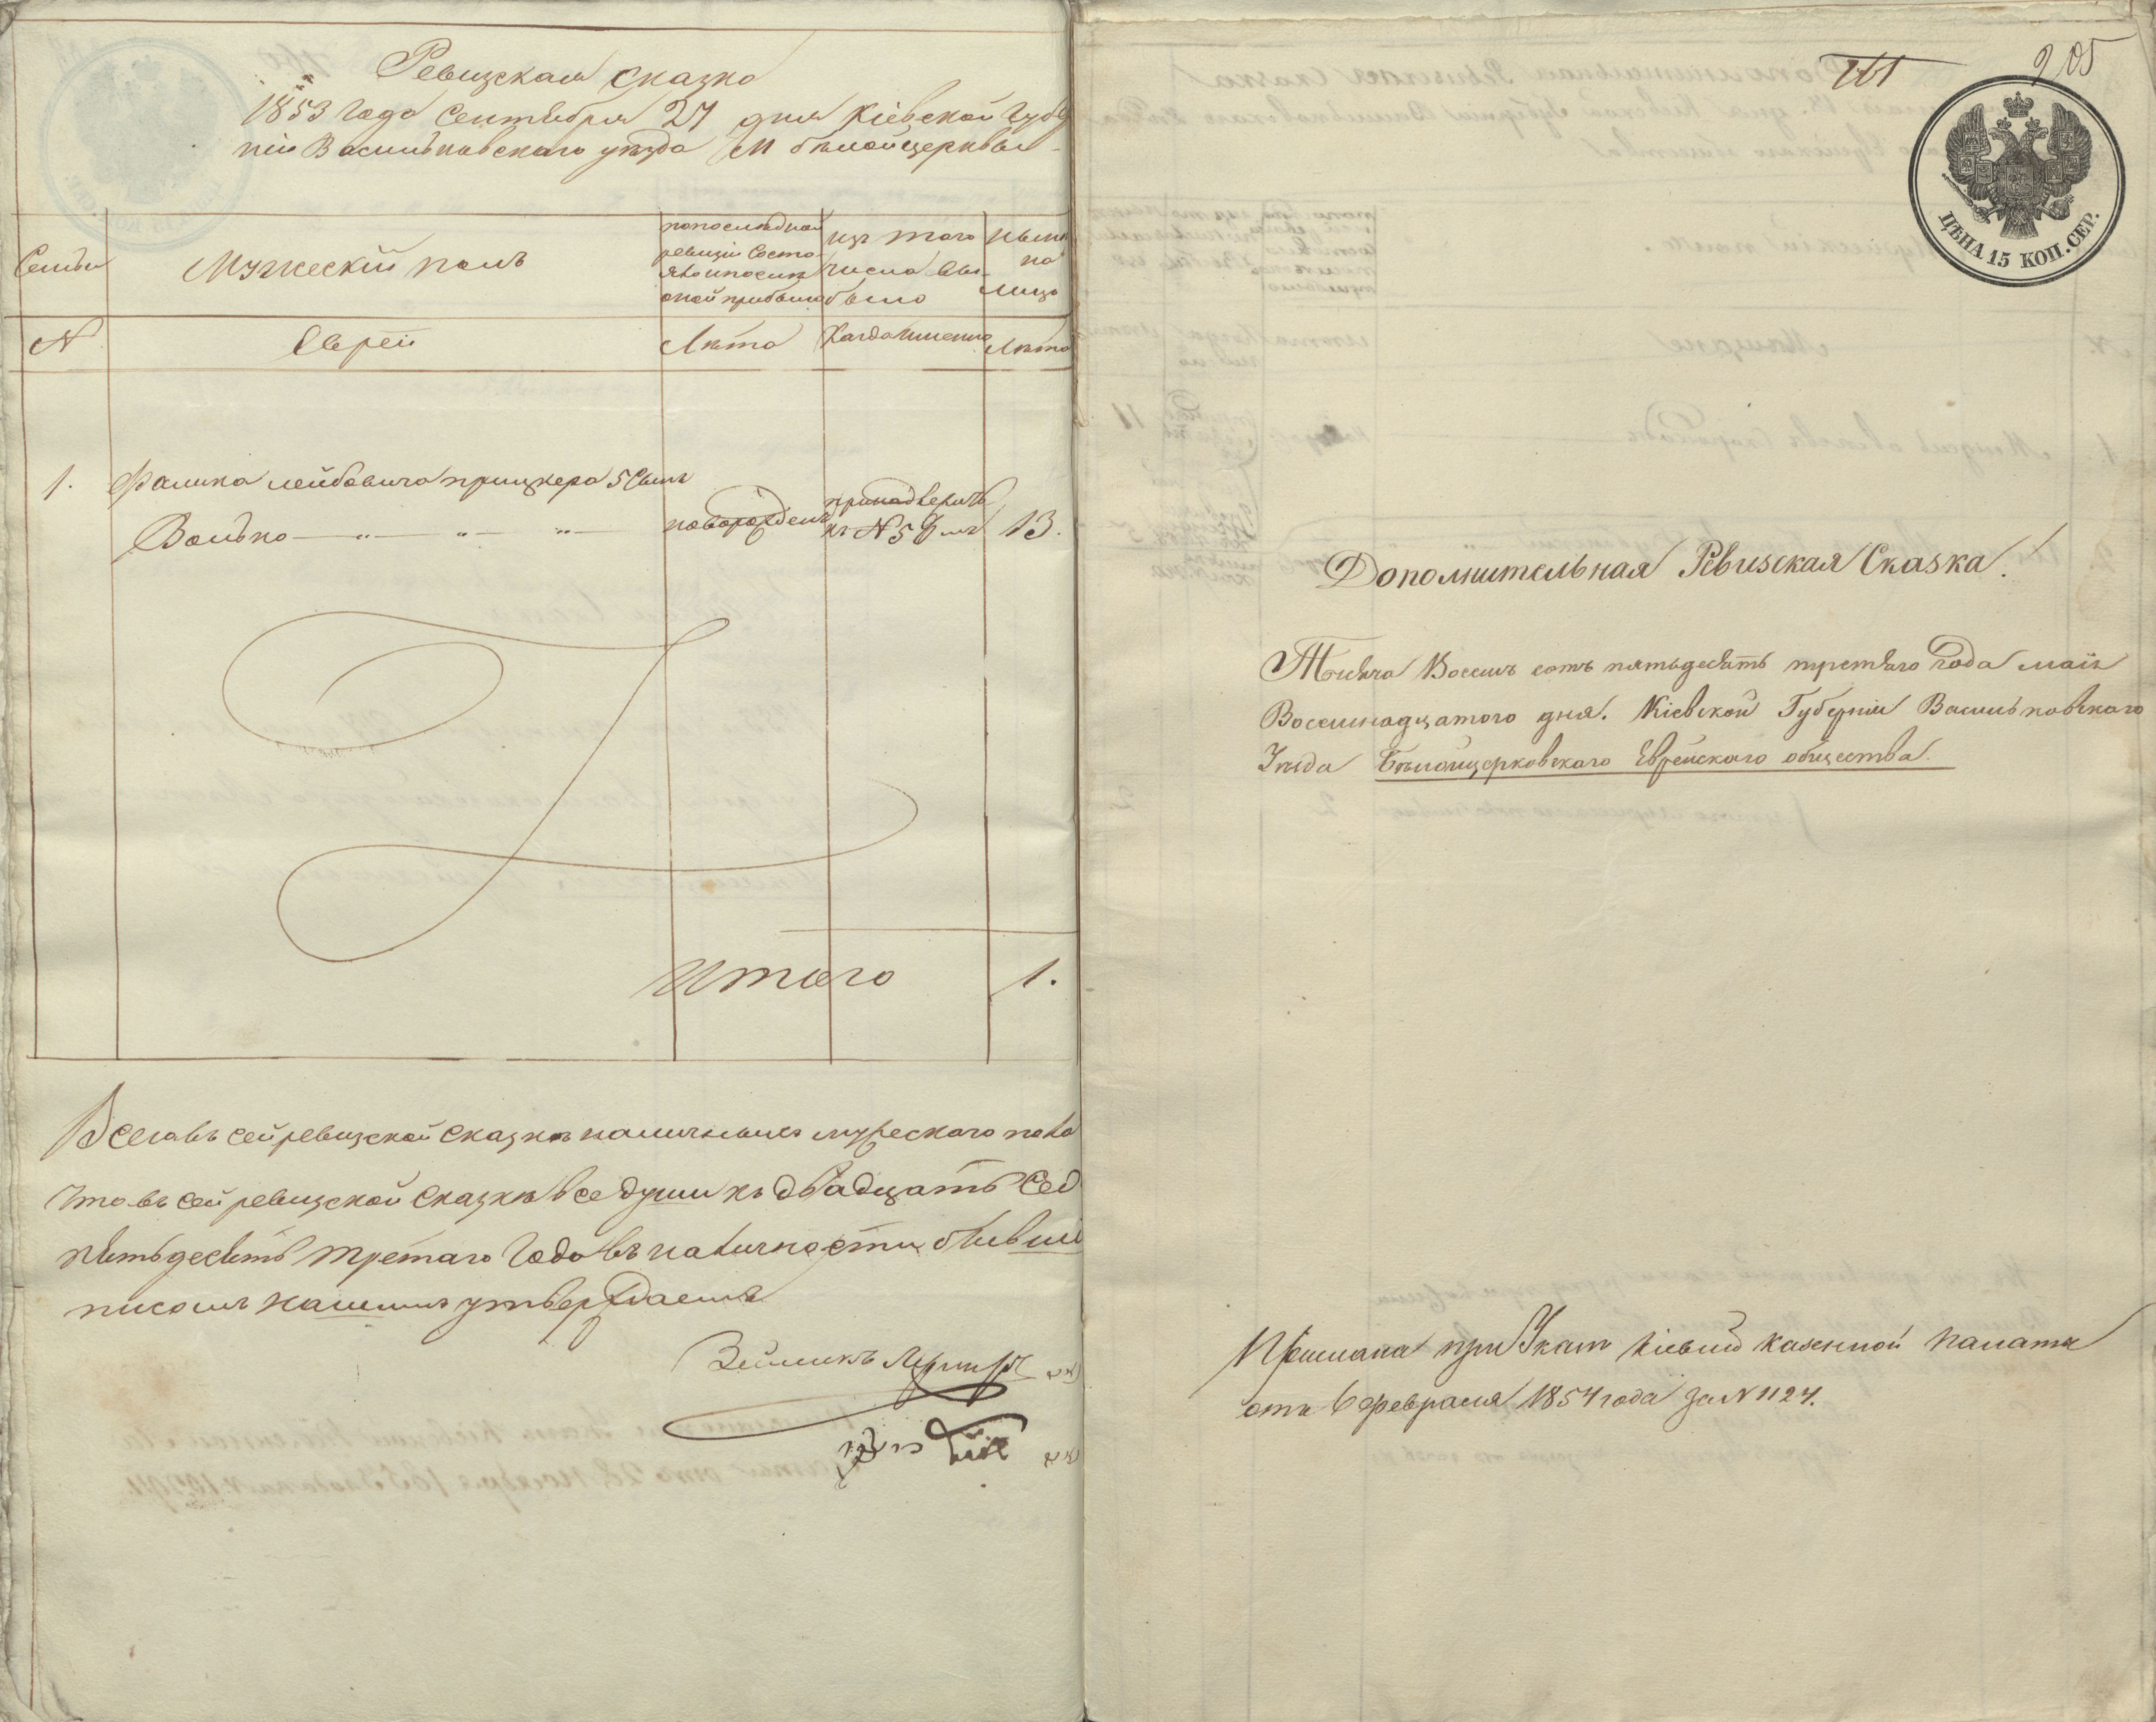 Ревизская сказка
1853 года Сентября 27 дня Кіевской Губер
ніи Васильковскаго уезда М белойцерквы
Семьи
Мужескій полъ
попоследней
ревизіи состо
яло ипосле
оной прибыло
изъ того
числа вы
было
ныне
на
лицо
N
Евреи
Лета
Когда именно
Лета
1. Фалика лейбовича прицкера 5 Сынъ
Волько — " — " — " —
новорожденъ
къ N 5
13.
Итого 1.
Всего въ сей ревизской сказке наличныхъ мужескаго пола
что въ сей ревизской сказке все души къ двадцать сед
пятьдесятъ третяго Года въ наличности
нашимъ утверждаемъ
Зейликъ
161
205
ЦѢНА 15 КОП. СЕР.
Дополнительная Ревизская Сказка.
Тысяча Восемъ сотъ пятьдесятъ третяго года маія
Восемнадцатого дня. Кіевской Губерніи Васильковскаго
Уезда Белоцерковскаго Еврейскаго общества.
При Указе Кіевской казенной палаты
отъ 6 февраля 1854 года за N 1124.